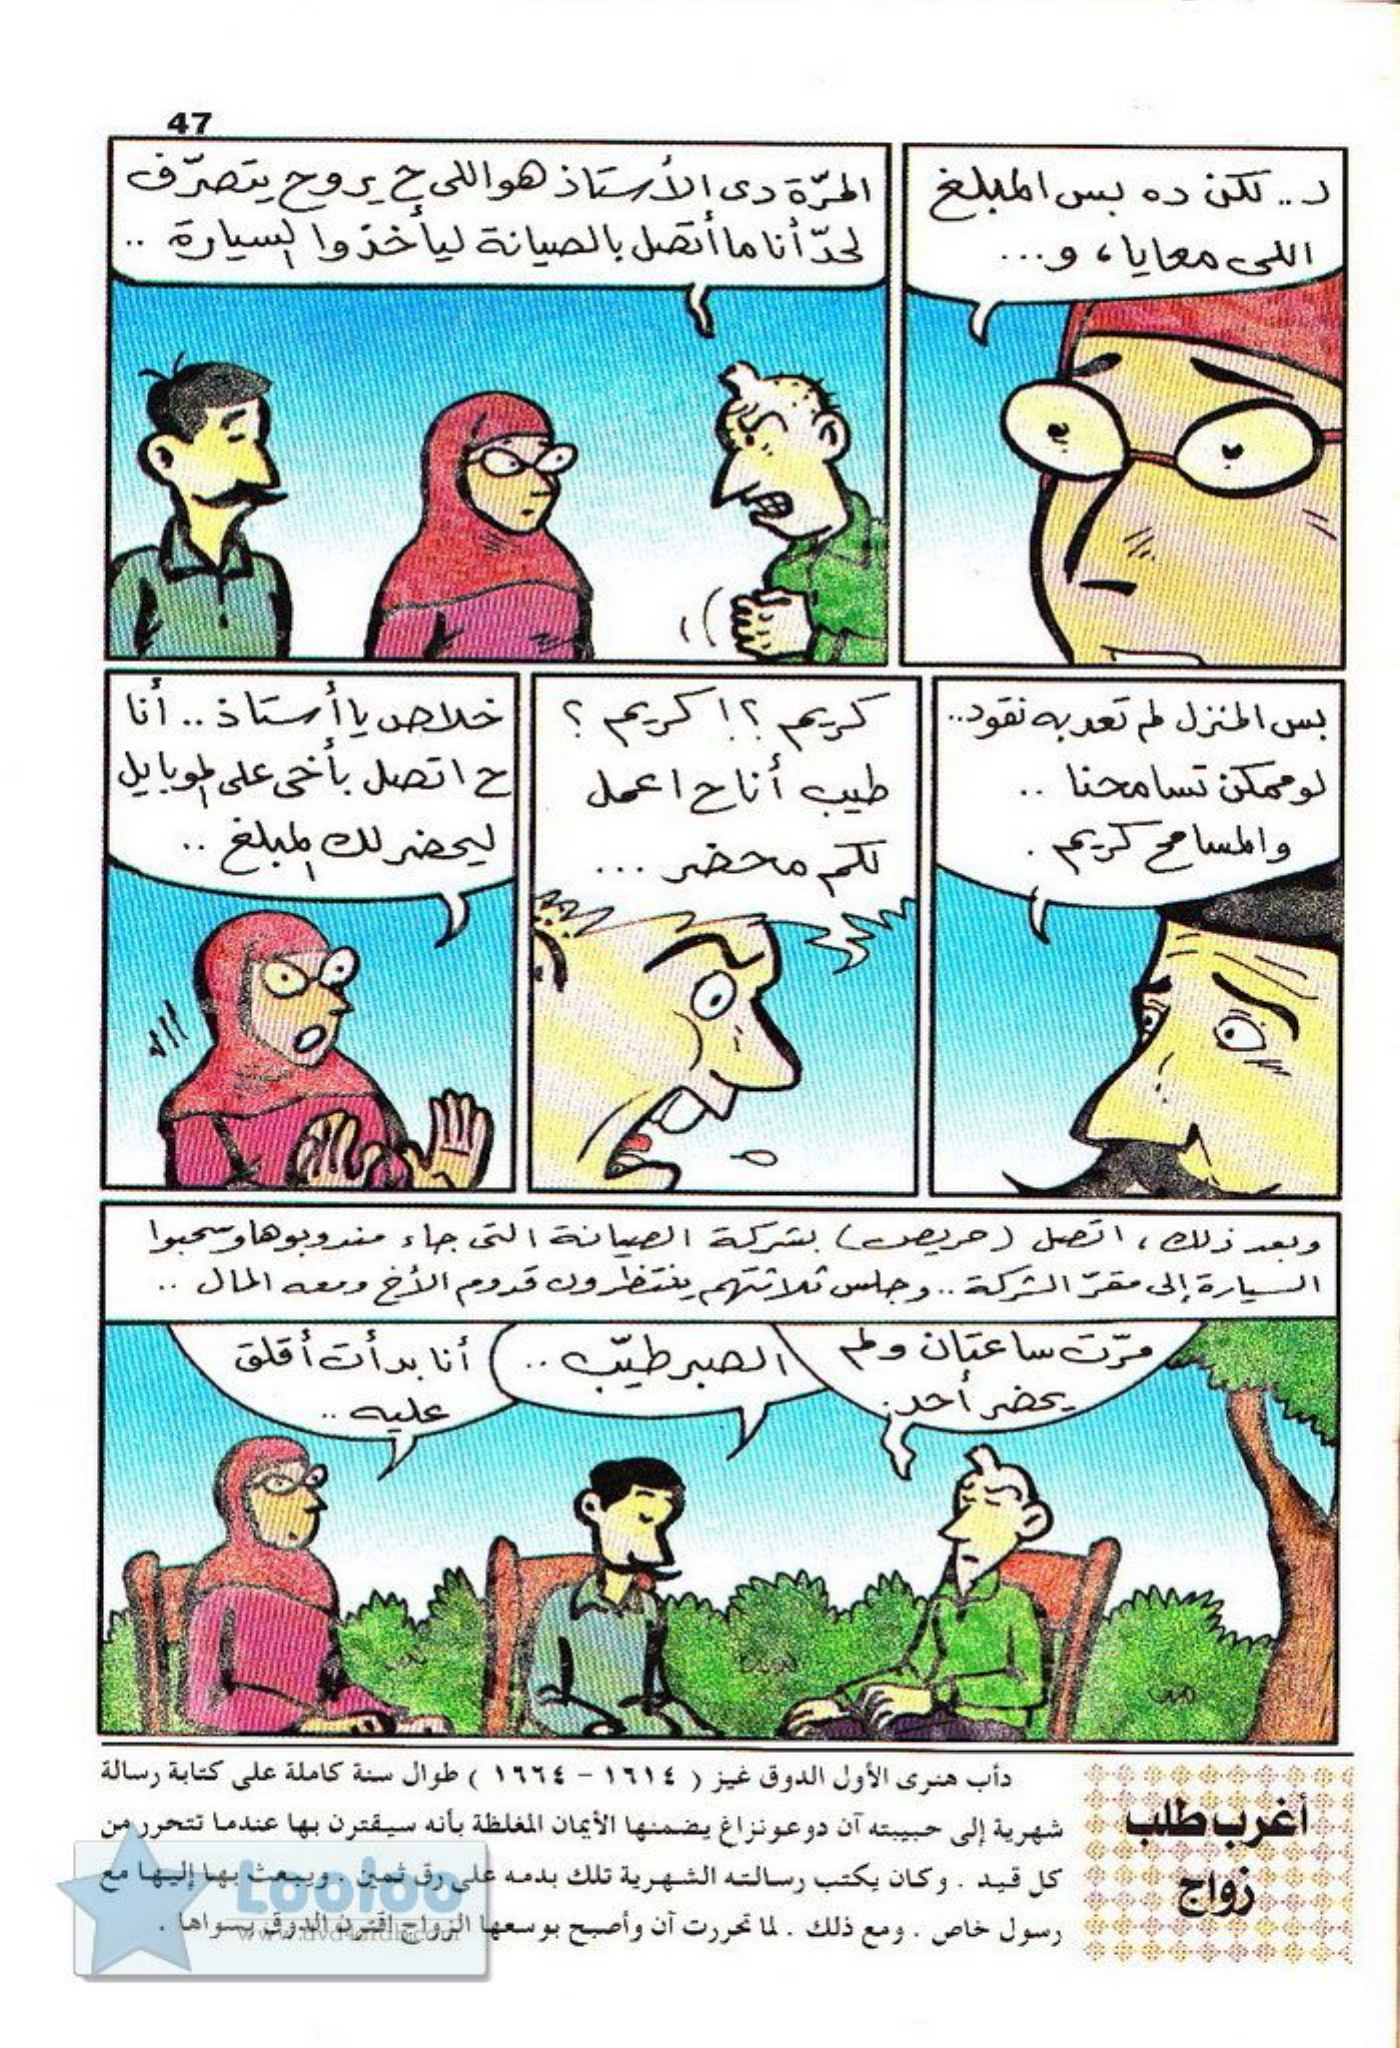 47
ل.. لكن ده بس المبلغ
اللى معايا، و...
المرّة دى الأستاذ هو اللى ح يروح يتصرّف
لحدّ أنا ما أتصل بالصيانة ليأخذوا السيارة ..
بس المنزل لم تعد به نقود..
لو ممكن تسامحنا ..
والمسامح كريم .
كريم ؟! كريم ؟
طيب أنا ح اعمل
لكم محضر ...
خلاص يا أستاذ .. أنا
ح اتصل بأخى على الموبايل
ليحضر لك المبلغ ..
وبعد ذلك، اتصل (حريص) بشركة الصيانة التى جاء مندوبوها وسحبوا
السيارة إلى مقرّ الشركة .. وجلس ثلاثتهم ينتظرون قدوم الأخ ومعه المال ..
مرّت ساعتان ولم
يحضر أحد.
الصبر طيّب ..
أنا بدأت أقلق
عليه ..
أغرب طلب
زواج
دأب هنرى الأول الدوق غيز ( ١٦١٤ - ١٦٦٤ ) طوال سنة كاملة على كتابة رسالة
شهرية إلى حبيبته آن دوغونزاغ يضمنها الأيمان المغلظة بأنه سيقترن بها عندما تتحرر من
كل قيد . وكان يكتب رسالته الشهرية تلك بدمه على رق ثمين . ويبعث بها إليها مع
رسول خاص . ومع ذلك . لما تحررت آن وأصبح بوسعها الزواج اقترن الدوق بسواها .
Looloo